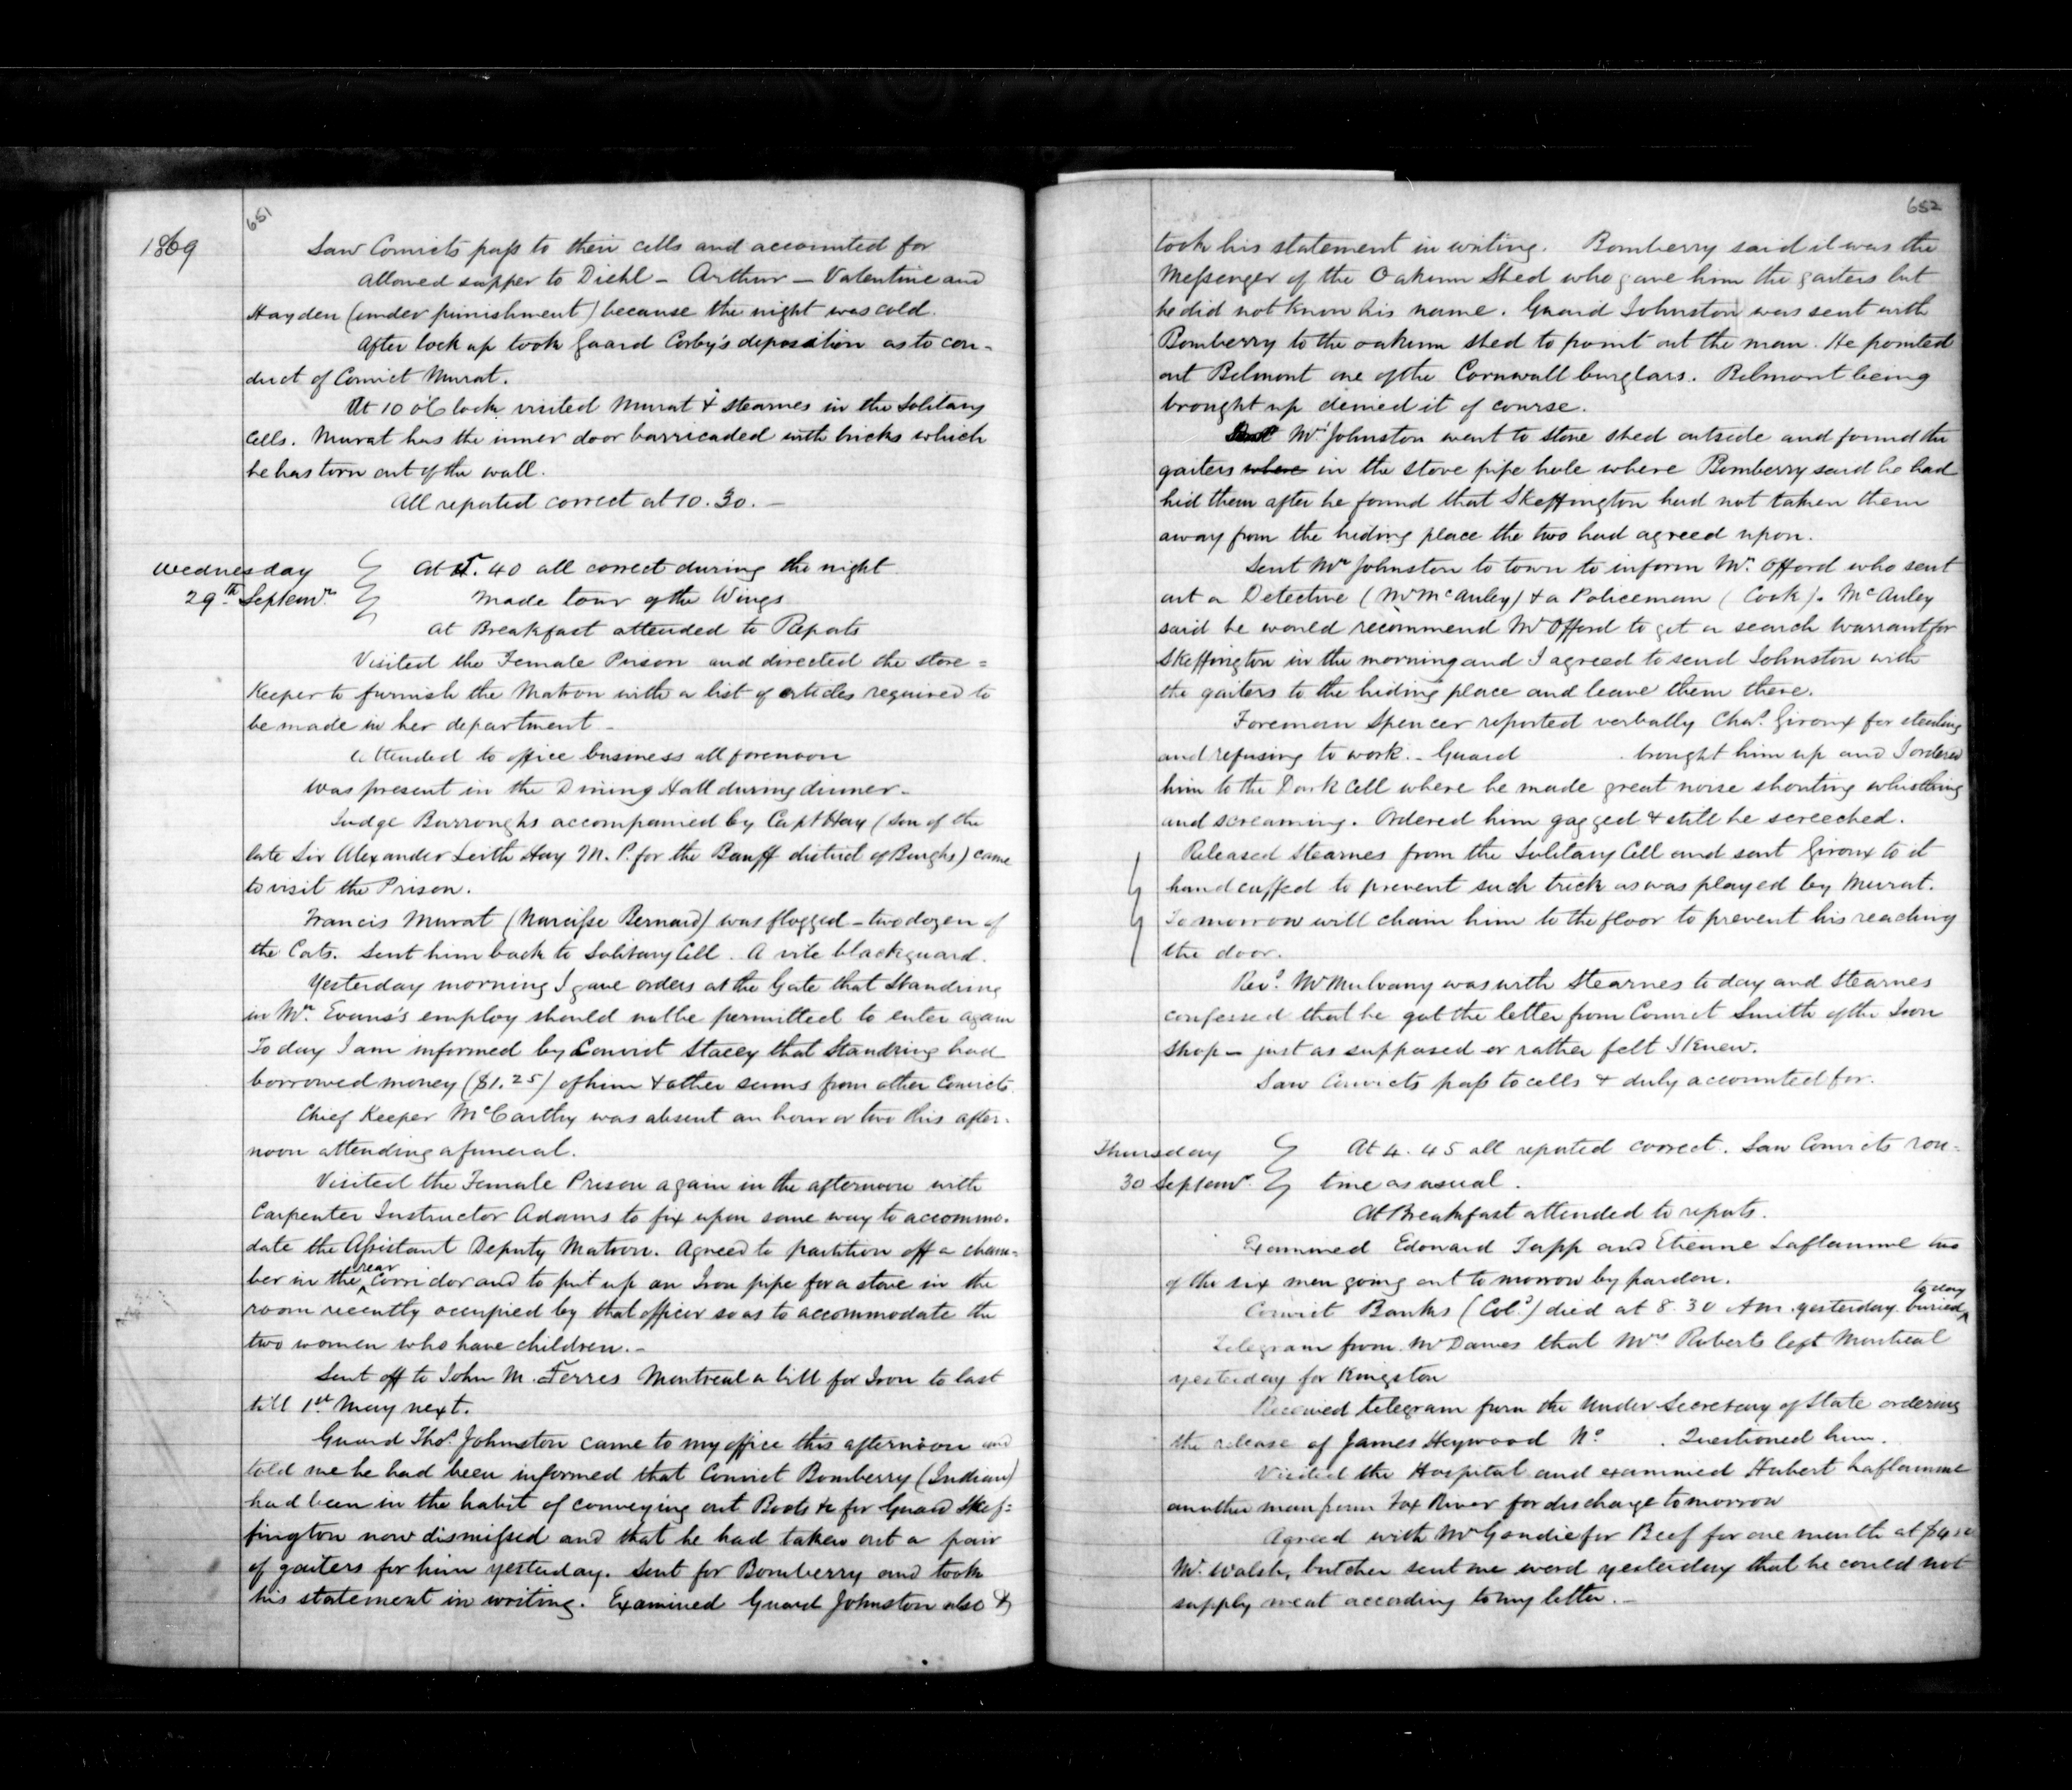 651
1869
Saw Convicts pass to their cells and accounted for
Allowed supper to Diehl - Arthur - Valentine and
Hayden (under punishment) because the night was cold.
After lock up took Guard Corby's deposition as to con-
duct of Convict Murat.
At 10 o'Clock visited Murat & Stearnes in the Solitary
Cells. Murat has the inner door barricaded with bricks which
he has torn out of the wall.
All reported correct at 10.30. -
Wednesday
29th Septemr
At 5.40 all correct during the night
Made tour of the Wings
At Breakfast attended to Reports
Visited the Female Prison and directed the store =
Keeper to furnish the Matron with a list of articles required to
be made in her department -
Attended to office business all forenoon
Was present in the Dining Hall during dinner -
Judge Burroughs accompanied by Capt Hay (son of the
late Sir Alexander Leith Hay M.P. for the Banff district of Burghs) came
to visit the Prison.
Francis Murat (Narcisse Bernard) was flogged - two dozen of
the Cats. Sent him back to Solitary Cell. A vile blackguard.
Yesterday morning I gave orders at the Gate that Standring
in Mr. Evans's employ should not be permitted to enter again
To day I am informed by Convict Stacey that Standring had
borrowed money ($1.25) of him & other sums from other Convicts.
Chief Keeper McCarthy was absent an hour or two this after-
noon attending a funeral.
Visited the Female Prison again in the afternoon with
Carpenter Instructor Adams to fix upon some way to accommo-
date the Assistant Deputy Matron. Agreed to partition off a cham-
ber in the rear Corridor and to put up an Iron pipe for a stove in the
room recently occupied by that officer so as to accommodate the
two women who have children. -
Sent off to John M. Ferres Montreal a bill for Iron to last
till 1st May next.
Guard Thos. Johnston came to my office this afternoon and
told me he had been informed that Convict Bomberry (Indian)
had been in the habit of conveying out Boots &c for Guard Skef-
fington now dismissed and that he had taken out a pair
of gaiters for him yesterday. Sent for Bomberry and took
his statement in writing. Examined Guard Johnston also &
652
took his statement in writing. Bomberry said it was the
Messenger of the Oakum Shed who gave him the gaiters but
he did not know his name. Guard Johnston was sent with
Bomberry to the oakum shed to point out the man. He pointed
out Belmont one of the Cornwall burglars. Belmont being
brought up denied it of course.
Mr. Johnston went to stone shed outside and found the
gaiters where in the stove pipe hole where Bomberry said he had
hid them after he found that Skeffington had not taken them
away from the hiding place the two had agreed upon.
Sent Mr Johnston to town to inform Mr. Offord who sent
out a Detective (Mr McAuley) & a Policeman (Cook). McAuley
said he would recommend Mr Offord to get a search warrant for
Skeffington in the morning and I agreed to send Johnston with
the gaiters to the hiding place and leave them there.
Foreman Spencer reported verbally Chas. Giroux for stealing
and refusing to work. - Guard . brought him up and I ordered
him to the Dark Cell where he made great noise shouting whistling
and screaming. Ordered him gagged & still he screeched.
Released Stearnes from the Solitary Cell and sent Giroux to it
handcuffed to prevent such trick as was played by Murat.
Tomorrow will chain him to the floor to prevent his reaching
the door.
Revd. Mr Mulvany was with Stearnes to day and Stearnes
confessed that he got the letter from Convict Smith of the Iron
Shop - just as supposed or rather felt I knew.
Saw Convicts pass to cells & duly accounted for.
Thursday
30 Septemr.
At 4.45 all reported correct. Saw Convicts rou-
tine as usual.
At Breakfast attended to reports.
Examined Edouard Tapp and Etienne Laflamme two
of the six men going out to morrow by pardon.
Convict Banks (Cold.) died at 8.30 Am. yesterday. buried to day
Telegram from Mr Dawes that Mrs Roberts left Montreal
yesterday for Kingston
Received telegram from the Under Secretary of State ordering
the release of James Heywood No . Questioned him.
Visited the Hospital and examined Hubert Laflamme
another man from Fox River for discharge tomorrow
Agreed with Mr Gandie for Beef for one month at
Mr. Walsh, butcher sent me word yesterday that he could not
supply meat according to my letter. -